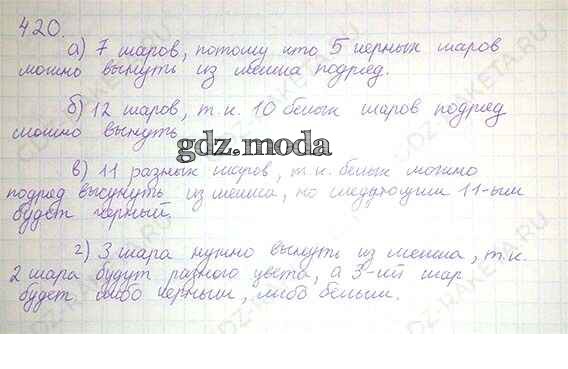 420.
а) 7 шаров, потому что 5 черных шаров
можно вынуть из мешка подряд.
б) 12 шаров, т.к. 10 белых шаров подряд
можно вынуть
gdz.moda
в) 11 разных шаров, т.к. белых можно
подряд высунуть из мешка, но следующим 11-ым
будет черный.
г) 3 шара нужно вынуть из мешка, т.к.
2 шара будут разного цвета, а 3-ий шар
будет либо черным, либо белым.